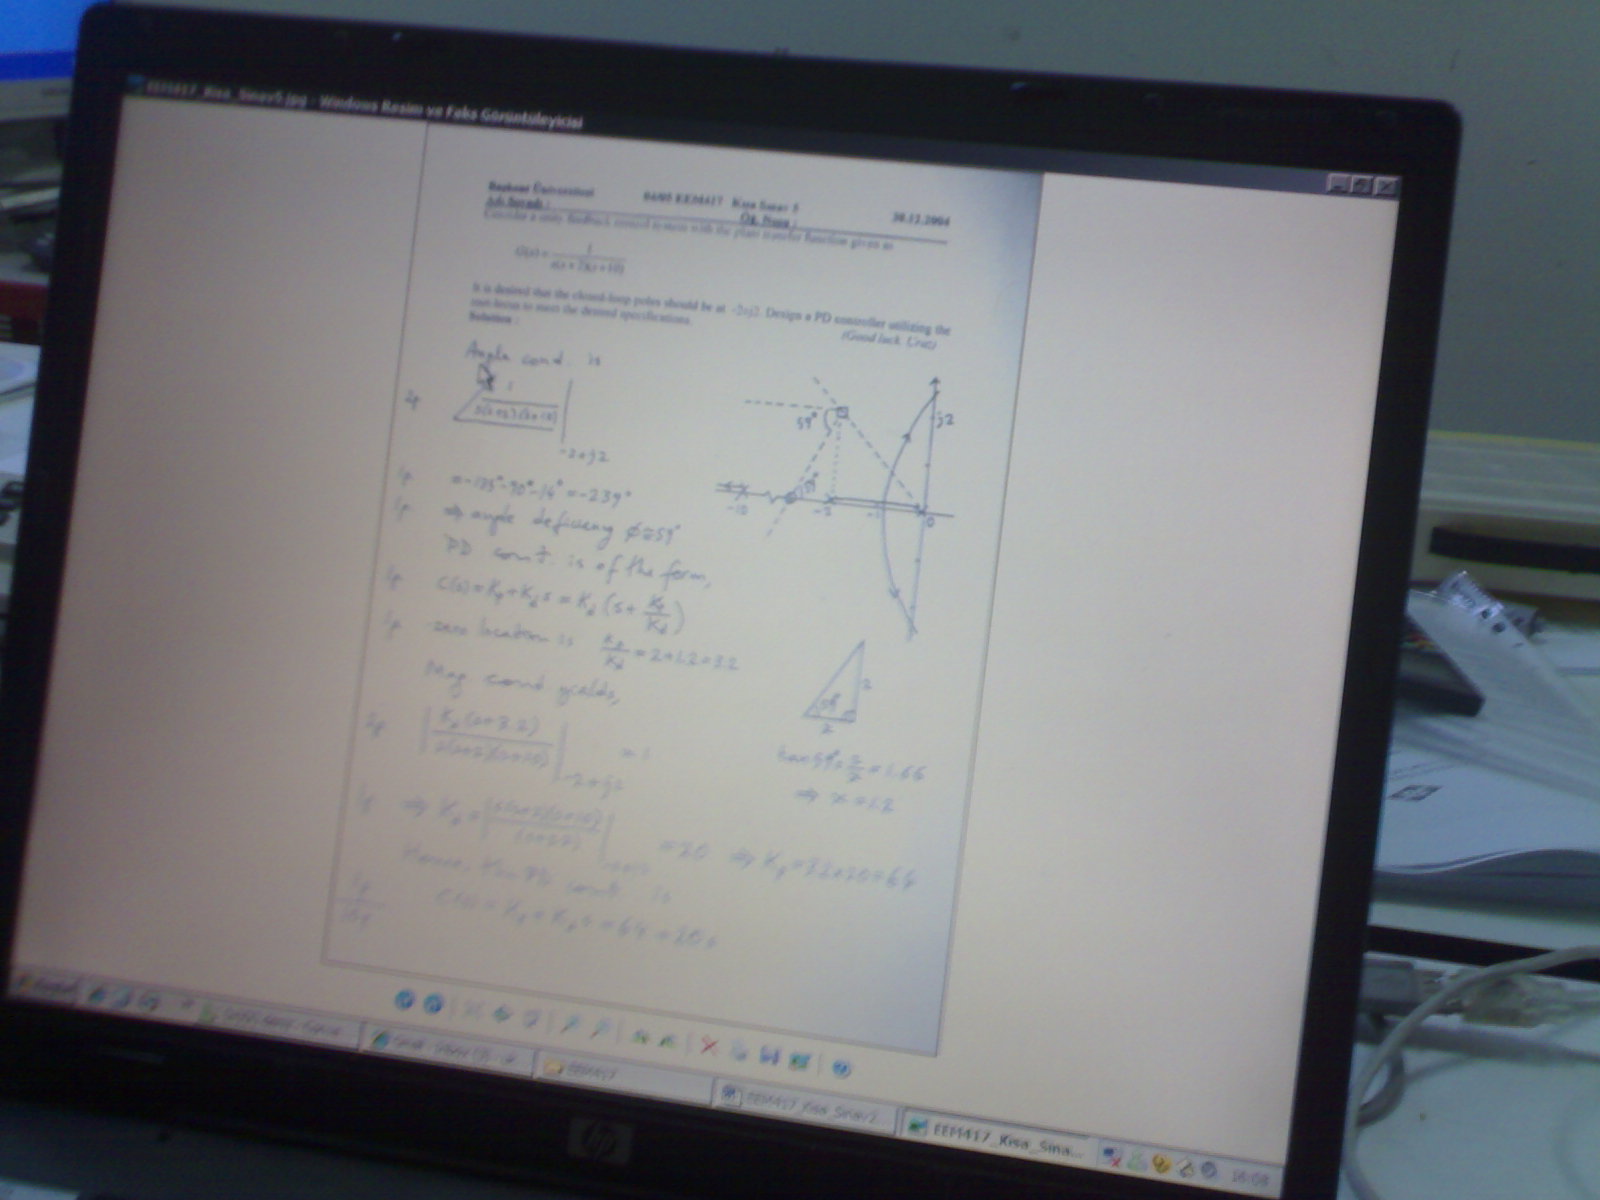 EEM417_Kisa_Sinav5.jpg - Windows Resim ve Faks Görüntüleyicisi
Başkent Üniversitesi 04/05 EEM417 Kısa Sınav 5 30.12.2004
Adı Soyadı : Öğ. Numa :
Consider a unity feedback control system with the plant transfer function given as
G(s) = 1
s(s+2)(s+10)
It is desired that the closed-loop poles should be at -2±j2. Design a PD controller utilizing the
root-locus to meet the desired specifications.
(Good luck,
Solution :
Angle cond. is
2p 1
s(s+2)(s+10)
-2+j2
1p =-135°-90°-14°=-239°
1p ⇒ angle deficiency φ≅59°
PD cont. is of the form,
1p C(s)=Kp+Kds = Kd(s+Kp/Kd)
1p zero location is Kp/Kd = 2+1.2=3.2
Mag cond yields,
2p |Kd(s+3.2)
s(s+2)(s+10)| = 1
-2+j2
1p ⇒ Kd = |s(s+2)(s+10)
(s+3.2)| =20 ⇒ Kp=3.2×20=64
Hence, the PD cont is
C(s) = Kp+Kds=64+20s
59°
j2
59°
-10 -2 -1 0
59° 2
tan59°=2/x=1.66
⇒ x=1.2
EEM417
EEM417_Kisa_Sinav2...
EEM417_Kisa_Sina...
16:03
hp